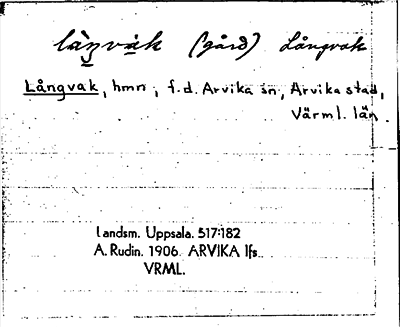 (gård) Långvak
Långvak, hmn, f.d. Arvika sn, Arvika stad,
Värml. län.
Landsm. Uppsala. 517:182
A. Rudin. 1906. ARVIKA lfs.
VRML.